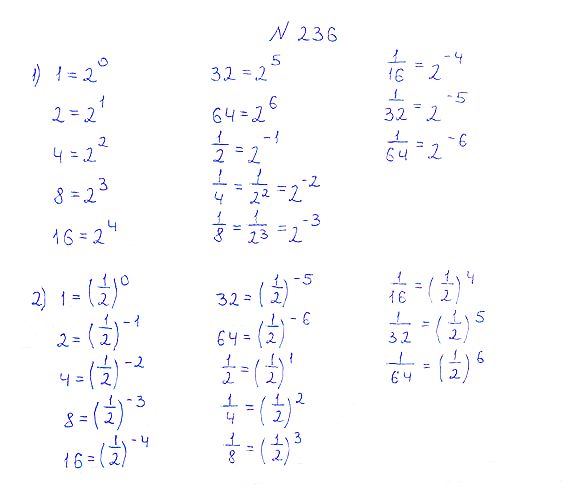 N 236
1) 1 = 2^0
2 = 2^1
4 = 2^2
8 = 2^3
16 = 2^4
32 = 2^5
64 = 2^6
1/2 = 2^-1
1/4 = 1/2^2 = 2^-2
1/8 = 1/2^3 = 2^-3
1/16 = 2^-4
1/32 = 2^-5
1/64 = 2^-6
2) 1 = (1/2)^0
2 = (1/2)^-1
4 = (1/2)^-2
8 = (1/2)^-3
16 = (1/2)^-4
32 = (1/2)^-5
64 = (1/2)^-6
1/2 = (1/2)^1
1/4 = (1/2)^2
1/8 = (1/2)^3
1/16 = (1/2)^4
1/32 = (1/2)^5
1/64 = (1/2)^6